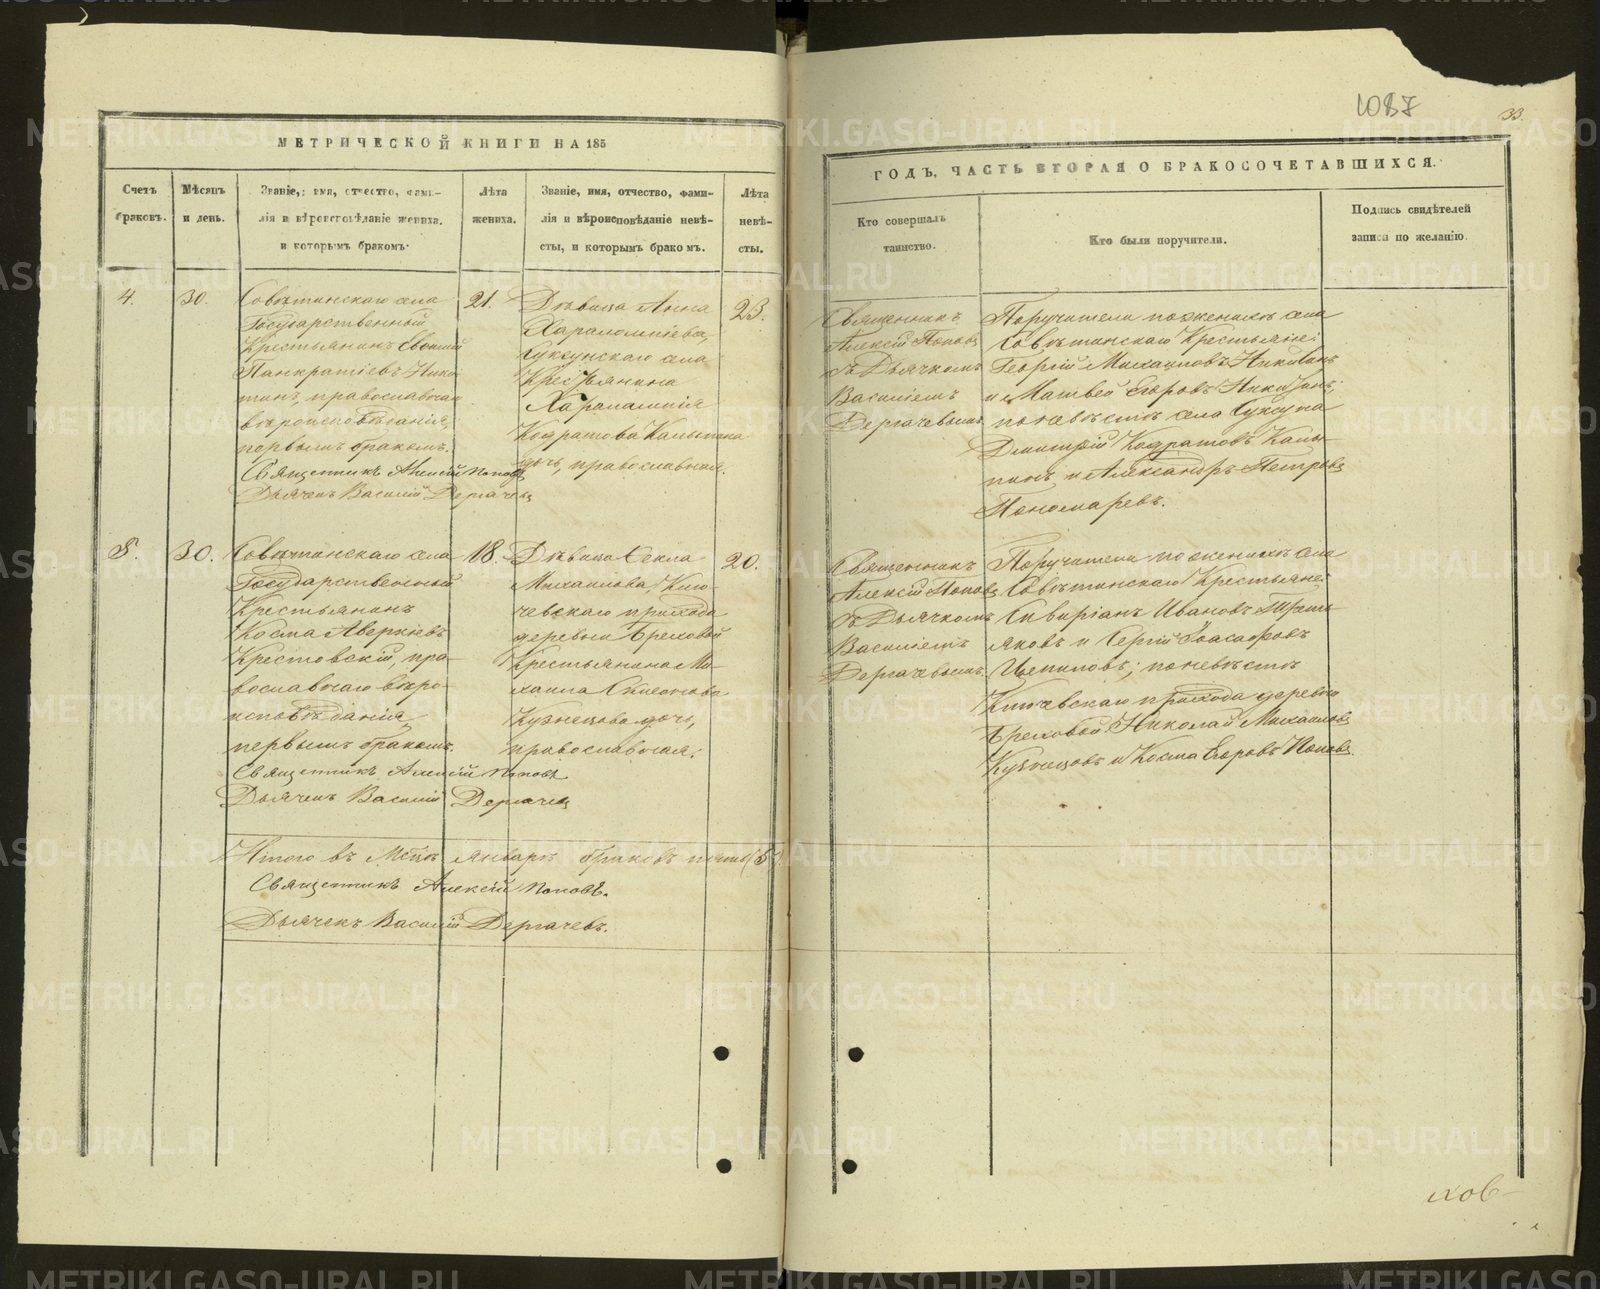 1087
33.
МЕТРИЧЕСКОЙ КНИГИ НА 185
ГОДЪ, ЧАСТЬ ВТОРАЯ О БРАКОСОЧЕТАВШИХСЯ.
Счетъ браковъ.
Мѣсяцъ и день.
Званіе, имя, отчество, фами-
лія и вѣроисповѣданіе жениха.
и которымъ бракомъ.
Лѣта жениха.
Званіе, имя, отчество, фами-
лія и вѣроисповѣданіе невѣ-
сты, и которымъ бракомъ.
Лѣта невѣ-
сты.
Кто совершалъ
таинство.
Кто были поручители.
Подпись свидѣтелей
записи по желанію.
4.
30.
Совѣтинскаго села
Государственный
Крестьянинъ
Панкратіевъ Ники
тинъ, православнаго
вѣроисповѣданія,
первымъ бракомъ.
Священникъ Алексій Поповъ
Дьячекъ Василій Дергачевъ
21.
Дѣвица Анна
Харалампіева,
Суксунскаго села
Крестьянина
Харалампія
Кодратова
дочь, православная.
23.
Священникъ
Алексій Поповъ
съ Дьячкомъ
Василіемъ
Дергачевымъ
Поручители по женихѣ села
Совѣтинскаго Крестьяне:
Георгій Михаиловъ Никитинъ
и Матвей Егоровъ Никитинъ;
по невѣстѣ села Суксуна
Димитрій Кодратовъ
и Александръ Петровъ
Пономаревъ.
5.
30.
Совѣтинскаго села
Государственный
Крестьянинъ
Косма Аверкіевъ
Крестовскій, пра-
вославнаго вѣро-
исповѣданія,
первымъ бракомъ.
Священникъ Алексій Поповъ
Дьячекъ Василій Дергачевъ
18.
Дѣвица Ѳекла
Михаилова, Клю-
чевскаго прихода
деревни Бреховой
Крестьянина Ми-
хаила
Кузнецова дочь,
православная.
20.
Священникъ
Алексій Поповъ
съ Дьячкомъ
Василіемъ
Дергачевымъ.
Поручители по женихѣ села
Совѣтинскаго Крестьяне:
Ивановъ Треть-
яковъ и Сергій
по невѣстѣ
Ключевскаго прихода деревни
Бреховой Николай Михаиловъ
Кузнецовъ и Косма Егоровъ Поповъ
Итого въ Мсцѣ Январѣ браковъ пять (5)
Священникъ Алексій Поповъ.
Дьячекъ Василій Дергачевъ.
ков-
METRIKI.GASO-URAL.RU